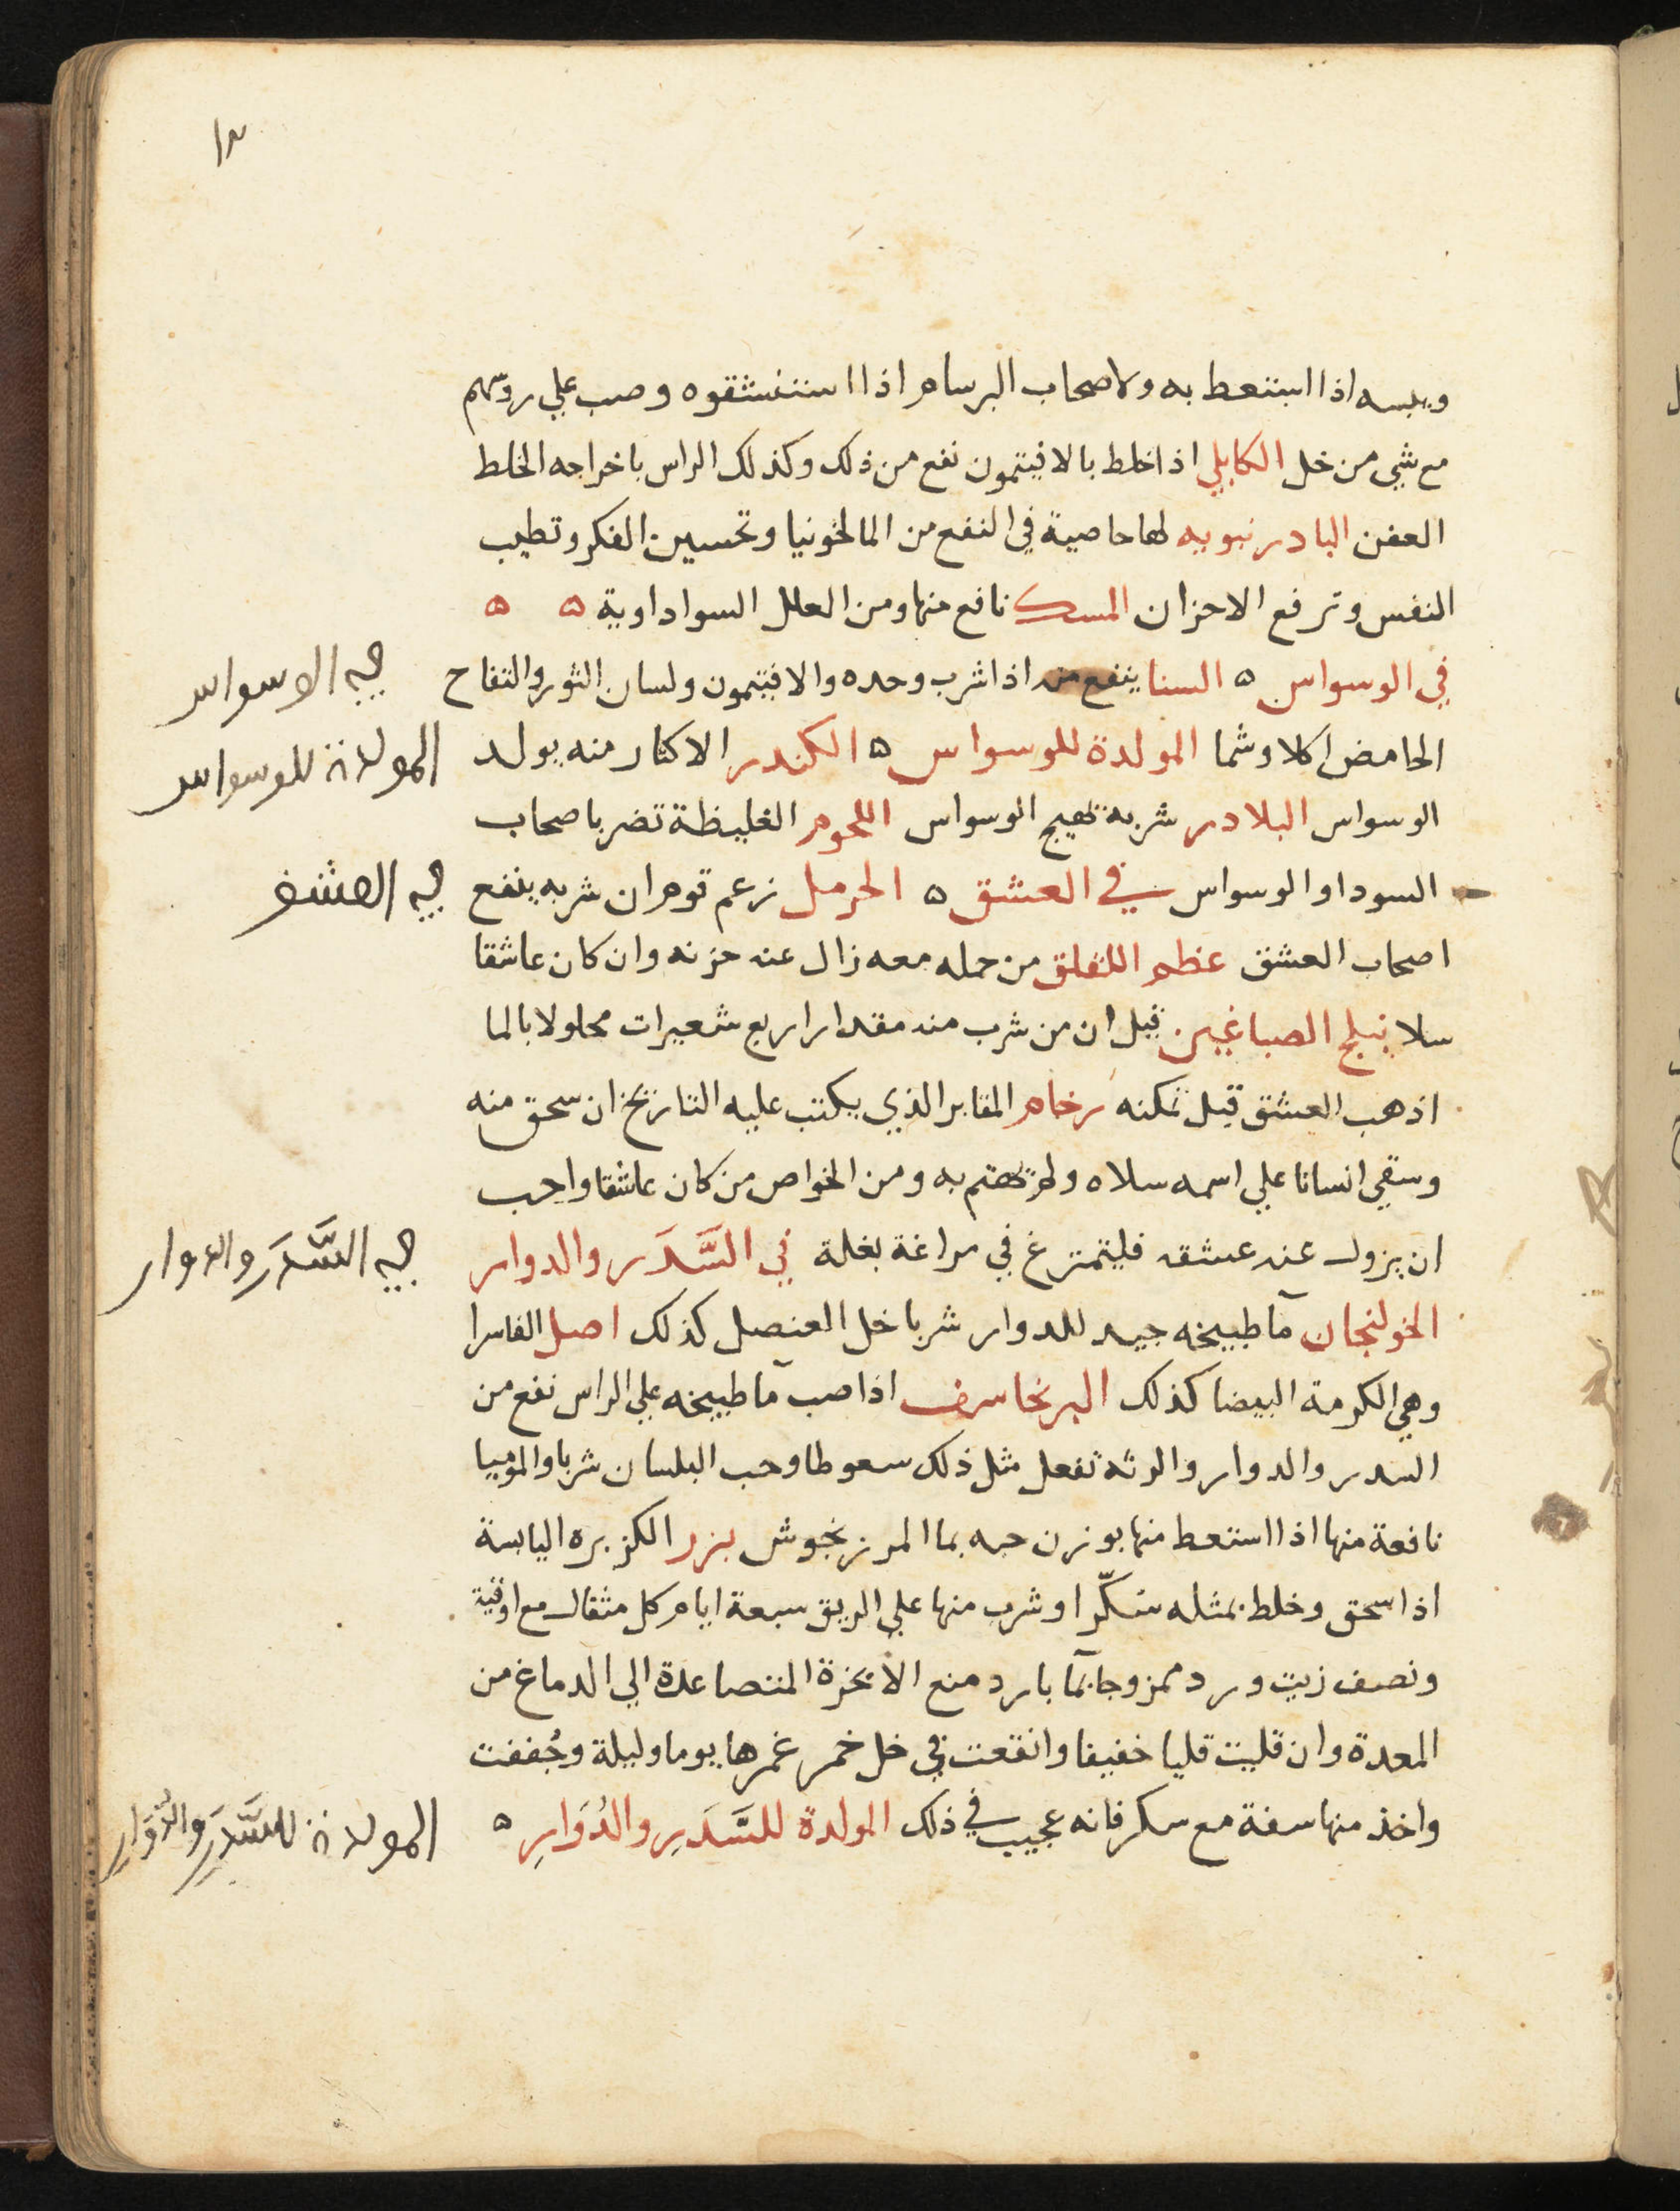 ١٣
ويبسه اذا استعط به ولاصحاب البرسام اذا استنشقوه وصب علي روسهم
مع شي من خل الكابلي اذا خلط بالافيتمون نفع من ذلك وكذلك الراس باخراجه الخلط
العفن البادرنبويه لها خاصية في النفع من المالخونيا وتحسين الفكر وتطيب
النفس وترفع الاحزان المسك نافع منها ومن العلل السواداوية ه ه
في الوسواس ه السنا ينفع منه اذا شرب وحده والافيتمون ولسان الثور والتفاح
في الاسواس
الحامض اكلا وشما المولدة للوسواس ه الكندر الاكثار منه يولد
المولدة للوسواس
الوسواس البلادر شربه تهيج الوسواس اللحوم الغليظة تضر باصحاب
السودا والوسواس في العشق ه الحرمل زعم قوم ان شربه ينفع
في العشق
اصحاب العشق عظم اللقلق من حمله معه زال عنه حزنه وان كان عاشقا
سلا نيلج الصباغين قيل ان من شرب منه مقدار اربع شعيرات محلولا بالما
اذهب العشق قبل تمكنه رخام المقابر الذي يكتب عليه التاريخ ان سحق منه
وسقي انسانا علي اسمه سلاه ولم تهتم به ومن الخواص من كان عاشقا واحب
ان يزول عنه عشقه فليتمرغ في مراغة بغلة في السَّدَر والدوار
في السَّدَر والدوار
الخولنجان مآ طبيخه جيد للدوار شربا خل العنصل كذلك اصل الفاسرا
وهي الكرمة البيضا كذلك البرنجاسف اذا صب مآ طبيخه علي الراس نفع من
السدر والدوار والرته تفعل مثل ذلك سعوطا وحب البلسان شربا والموميا
نافعة منها اذا استعط منها بوزن حبه بما المرزنجوش بزر الكزبره اليابسة
اذا سحق وخلط بمثله سكّرا وشرب منها علي الريق سبعة ايام كل مثقال مع اوقية
ونصف زيت ورد ممزوجا بمآ بارد منع الابخرة المتصاعدة الي الدماغ من
المعدة وان قليت قليا خفيفا وانقعت في خل خمر غمرها يوما وليلة وجُففت
واخذ منها سفة مع سكر فانه عجيب في ذلك المولدة للسَّدَرِ والدُوَارِ ه
المولدة للسَّدَرِ والدُّوَارِ